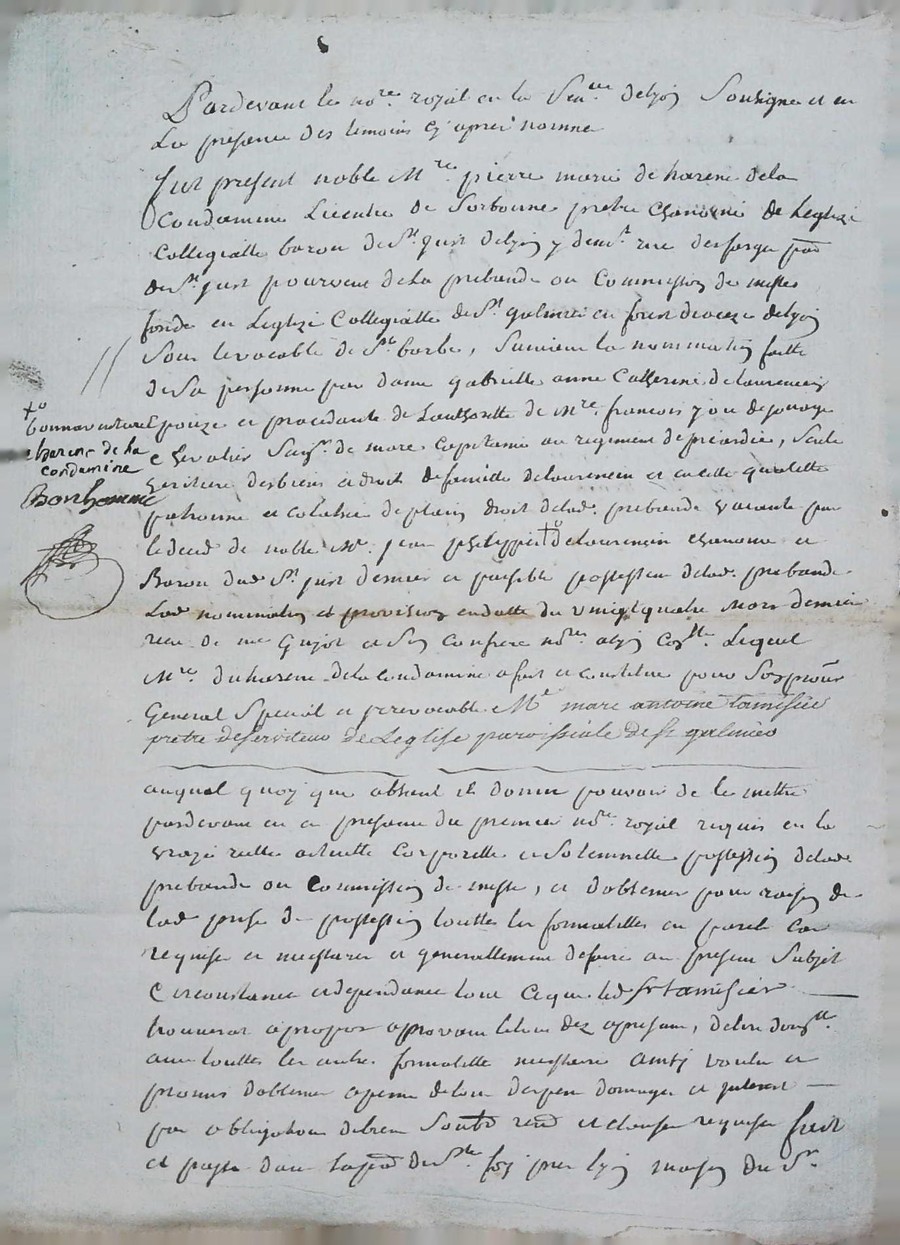 Pardevant le no.re royal en la Sen.ee delyon Soubsigne et en
La presence des temoins cy apres nomme
fut present noble M.re pierre marie de harene dela
Condamine Licentie de Sorbonne pretre chanoine de Leglize
Collegialle baron de St. just delyon y dem.t rue des farges par
de St. just pourveu dela prebande ou Commission de messes
fondé en Leglize Collegialle de St. galmier en forest dioceze delyon
Sous levocable de Ste barbe, Suivant la nommation faitte
de Sa personne par dame gabrielle anne Catherine delaurencin
Epouze et procedante de Lauthorette de M.re francois yon de jonage
chevalier Seig.r de more Capitaine au regiment de picardie, Seule
heritiere des biens et droit de famille delaurencin et en cette qualitté
patronne et colatrice de plain droit de lad. prebande vacante par
le deces de noble M.e jean philippe +o delaurencin chanoine et
Baron dud St. just dernier et paisible possesseur delad. prebande
Lad nommation et provision en datte du vingt quatre mars dernier
receu de me Guyot et Son Confrere no.res alyon Lequel
M.re duharene delacondamine a fait et constitue pour Son procur
General Special et irrevocable M.e marc antoine tamisier
pretre deserviteur de Leglise paroissiale de St galmier
auquel quoy que absent il donne pouvoir de le mettre
pardevant et en presence du premier no.re royal requis en la
vraye reelle actuelle Corporelle et Solemnelle possession delade
prebande ou Commission de messe, et dobtenir pour raison de
lad prise de possession touttes les formalittes en pareil Cas
requise et necessaire et generallement defaire au present Subjet
Circonstance et dependance tout ceque led Sr tamisier
trouverat apropos aprouvant letout dez apresent,
avec touttes les autres formalitte necessaire ainsi voulu et
promis dobtenir apeine detous despens domages et interest
par obligation debiens Soub renon et clauses requises fait
et passé dans la par de Ste foy pres lyon maison du Sr
+o
bonnaventure
harene de la
condamine
Bonhomme